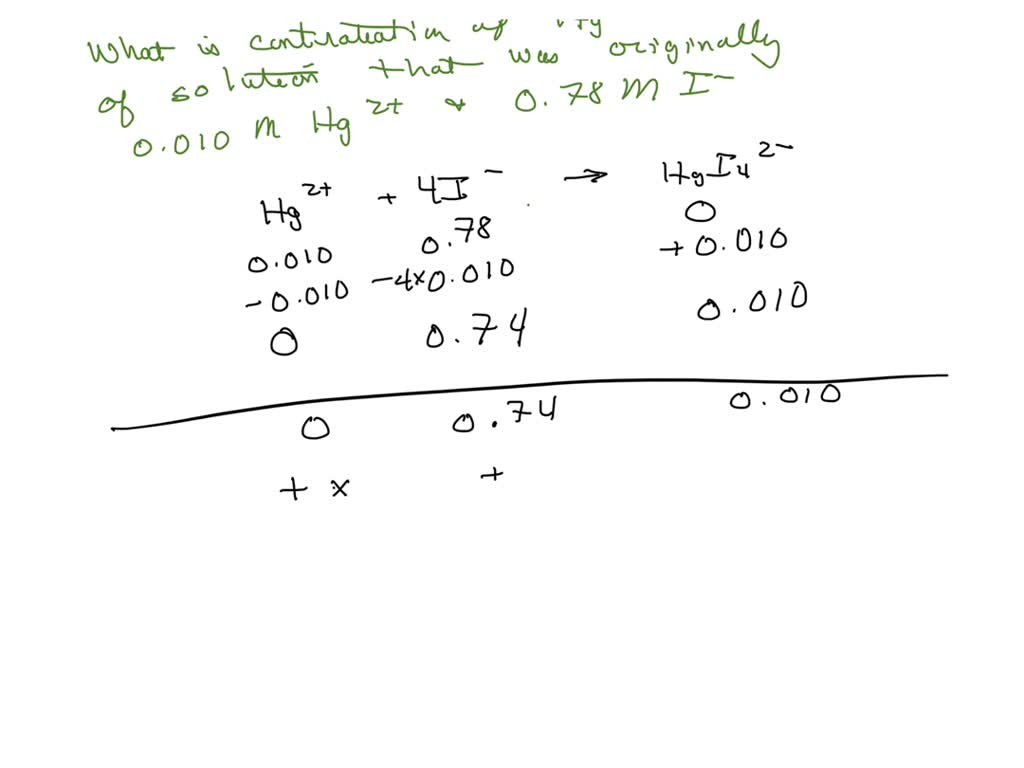 What is contration of
of solution that was originally
0.010 m Hg 2+ & 0.78 M I-
Hg 2+ + 4I - → HgI4 2-
0.010 0.78 0
-0.010 -4x0.010 +0.010
0 0.74 0.010
0 0.74 0.010
+ x +